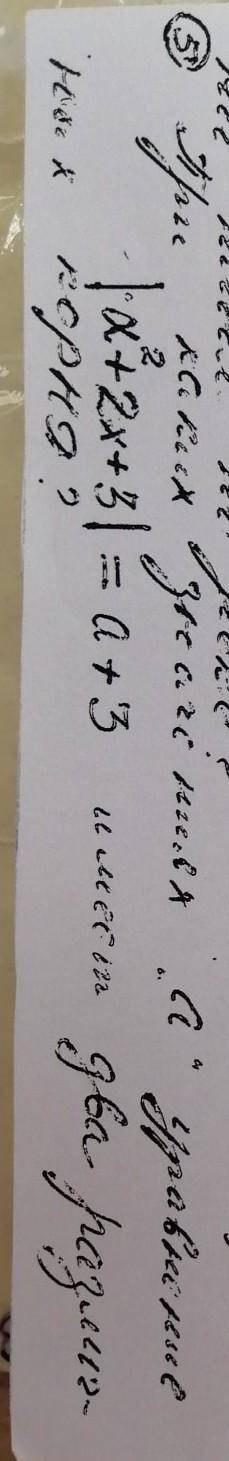 ⑤ При каких значениях "а" уравнение
|x²+2x+3| = a+3 имеет два различ-
ных корня?